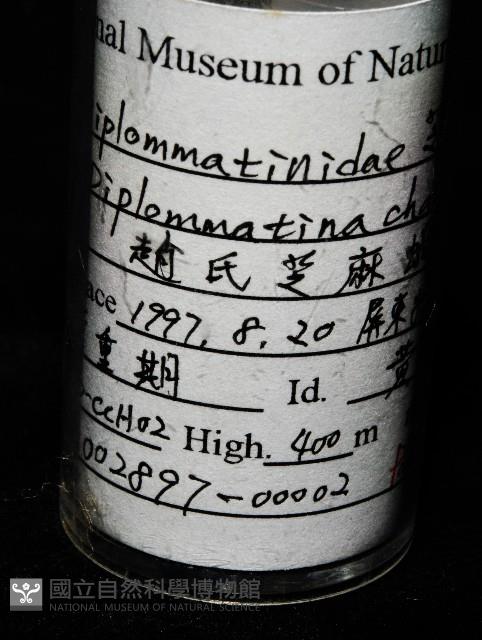 nal Museum of Natu
iplommatinidae
Diplommatina cha
趙氏芝麻蝸
ace 1997. 8. 20 屏東
重期 Id. 黃
-CCH02 High. 400 m
002897-00002
國立自然科學博物館
NATIONAL MUSEUM OF NATURAL SCIENCE